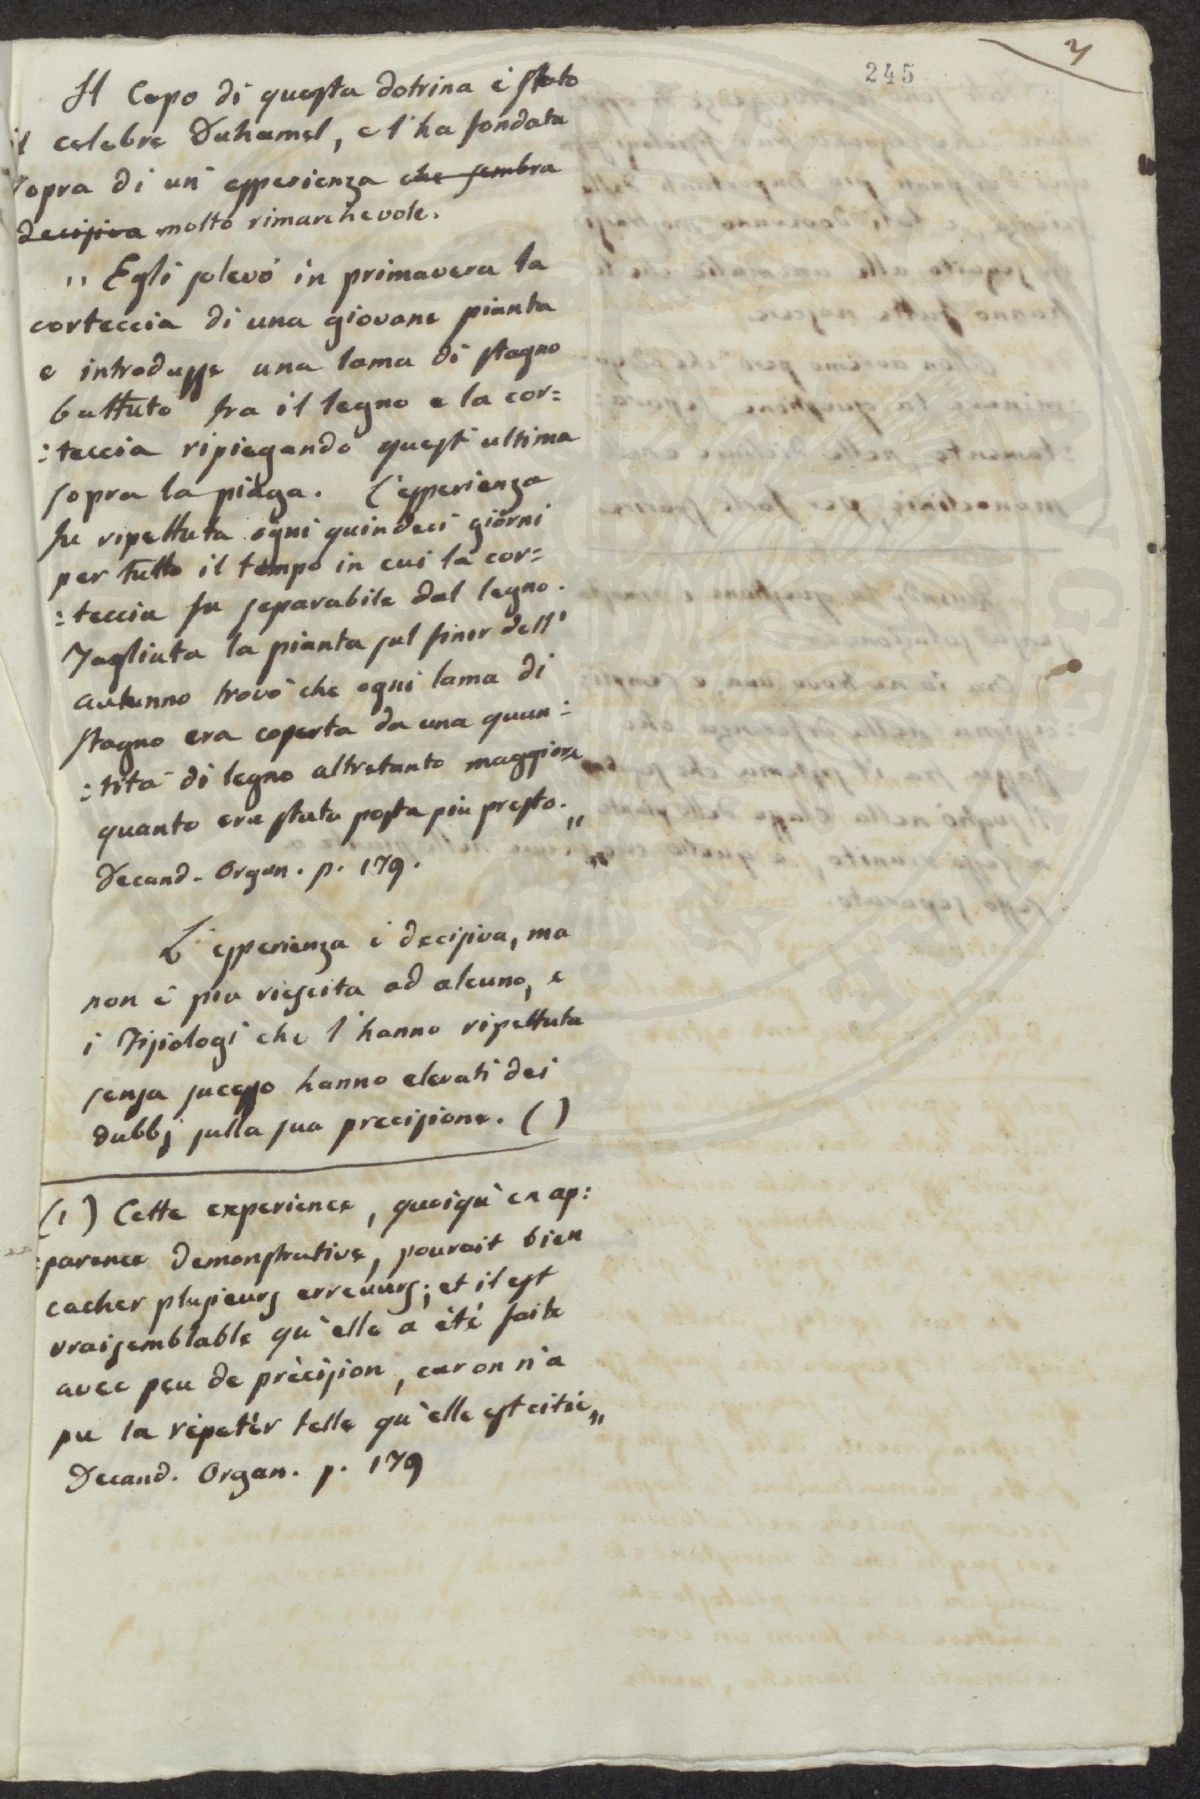 245
7
Il Capo di questa dotrina è stato
il celebre Duhamel, e l'ha fondata
sopra di un' esperienza che sembra
decisiva molto rimarchevole.
,, Egli solevò in primavera la
corteccia di una giovane pianta
e introdusse una lama di stagno
battuto fra il legno e la cor=
:teccia ripiegando quest' ultima
sopra la piäga. L'esperienza
fu ripettuta ogni quindeci giorni
per tutto il tempo in cui la cor=
:teccia fu separabile dal legno.
Tagliata la pianta sul finir dell'
autunno trovò che ogni lama di
stagno era coperta da una quan:
:tità di legno altretanto maggiore
quanto era stata posta più presto. ,,
Decand. Organ. p. 179.
L'esperienza è decisiva, ma
non è più riescita ad alcuno, e
i Fisiologi che l'hanno ripettuta
senza sucesso hanno elevati dei
dubbj sulla sua precisione. ( )
(1) Cette experience, quoiqu'en ap:
:parence demonstrative, pourait bien
cacher plusieurs erreuurs; et il est
vraisemblable qu'elle a été faite
avec peu de précision, car on n'a
pu la répetér telle qu'elle est citée ,,
Decand. Organ. p. 179